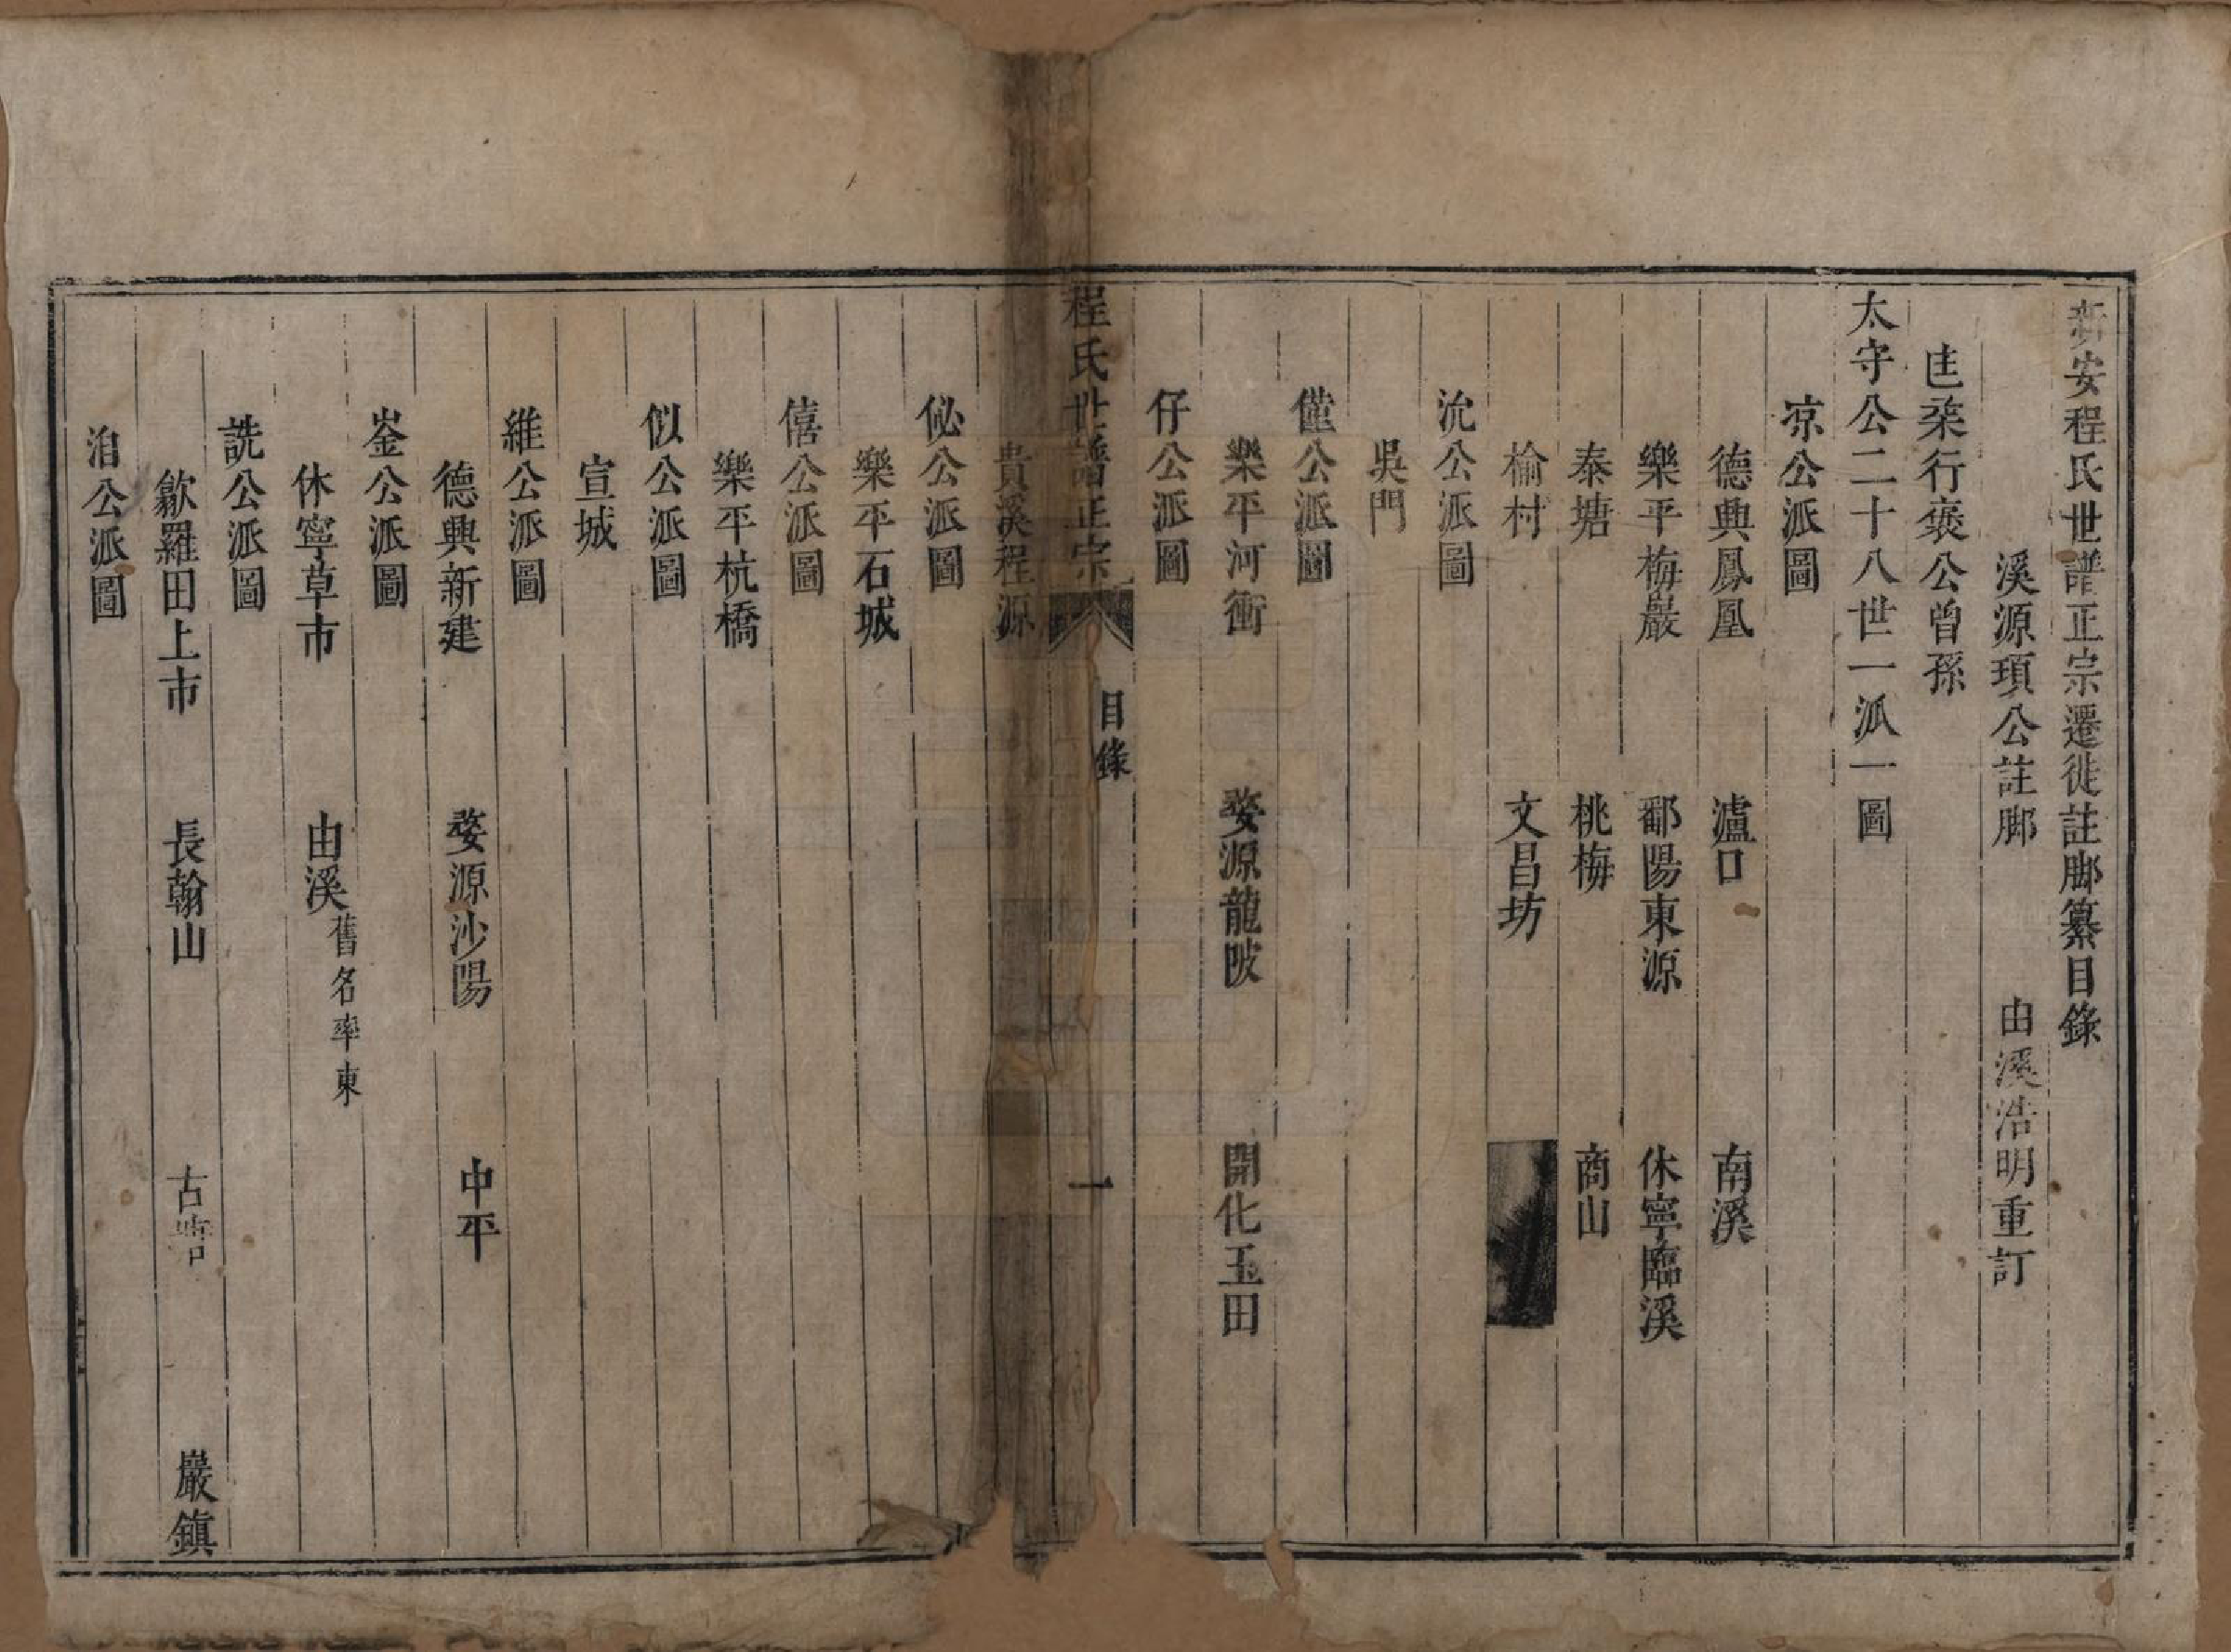 新安程氏世譜正宗遷徙註脚纂目錄
溪源項公註脚　由溪浩明重訂
行褒公曾孫
太守公二十八世一派一圖
涼公派圖
德興鳳凰　瀘口　南溪
樂平梅巖　鄱陽東源　休寧臨溪
泰塘　桃梅　商山
榆村　文昌坊
沇公派圖
吳門
僅公派圖
樂平河衝　婺源龍陂　開化玉田
仔公派圖
程氏世譜正宗　目錄　一
貴溪程源
佖公派圖
樂平石城
僖公派圖
樂平杭橋
似公派圖
宣城
維公派圖
德興新建　婺源沙陽　中平
崟公派圖
休寧草市　由溪舊名率東
詵公派圖
歙羅田上市　長翰山　古　巖鎮
洎公派圖